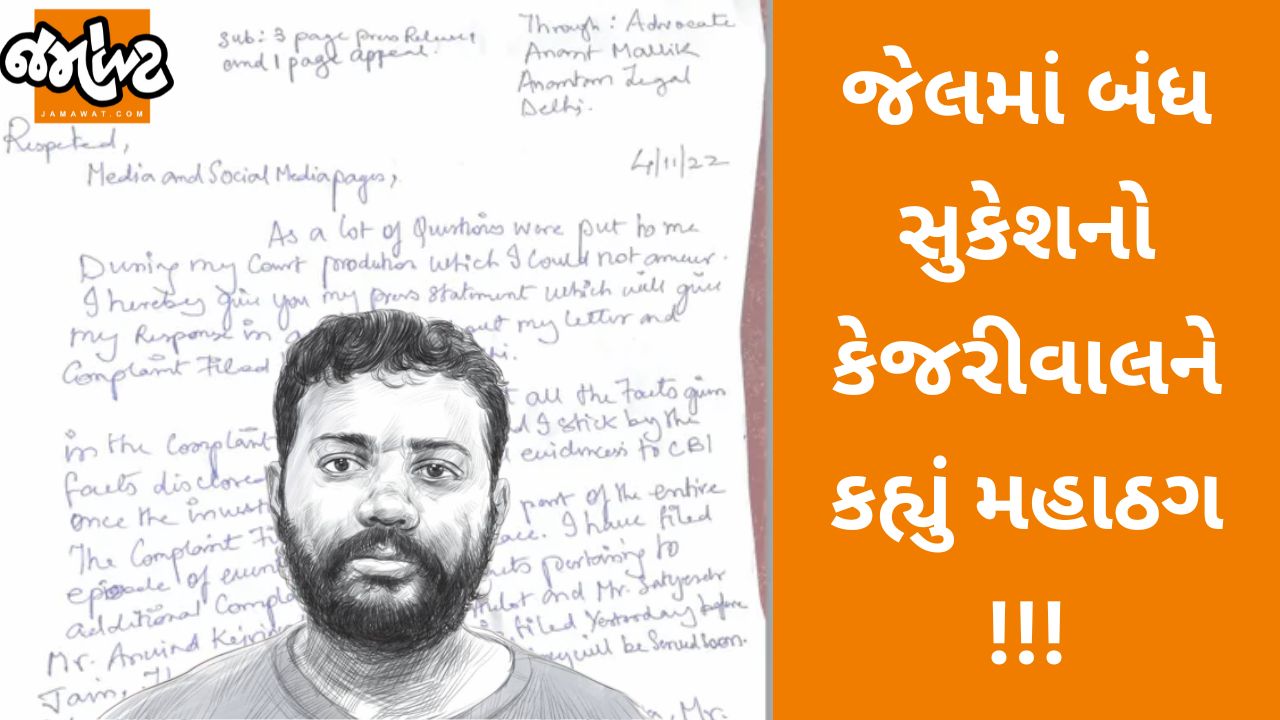 જમાવટ
JAMAWAT.COM
Sub: 3 page press Release
and 1 page appeal.
Through: Advocate
Anant Mallik
Anantam Legal
Delhi.
Respeted,
4/11/22
Media and Social Media pages,
As a lot of Questions were put to me
During my Court prodution which I could not answer.
I hereby give you my press statement which will give
my Response in a out my letter and
Complaint Filed
all the Facts given
in the Complaint d I stick by the
facts disclosed evidences to CBI
once the invest part of the entire
The Complaint Fi ace. I have filed
episode of event pertaining to
additional Compla and Mr. Satyendr
Mr. Arvind Kejri filed Yesterday before
Jain, will be Served soon.
Mr.
જેલમાં બંધ
સુકેશનો
કેજરીવાલને
કહ્યું મહાઠગ
!!!